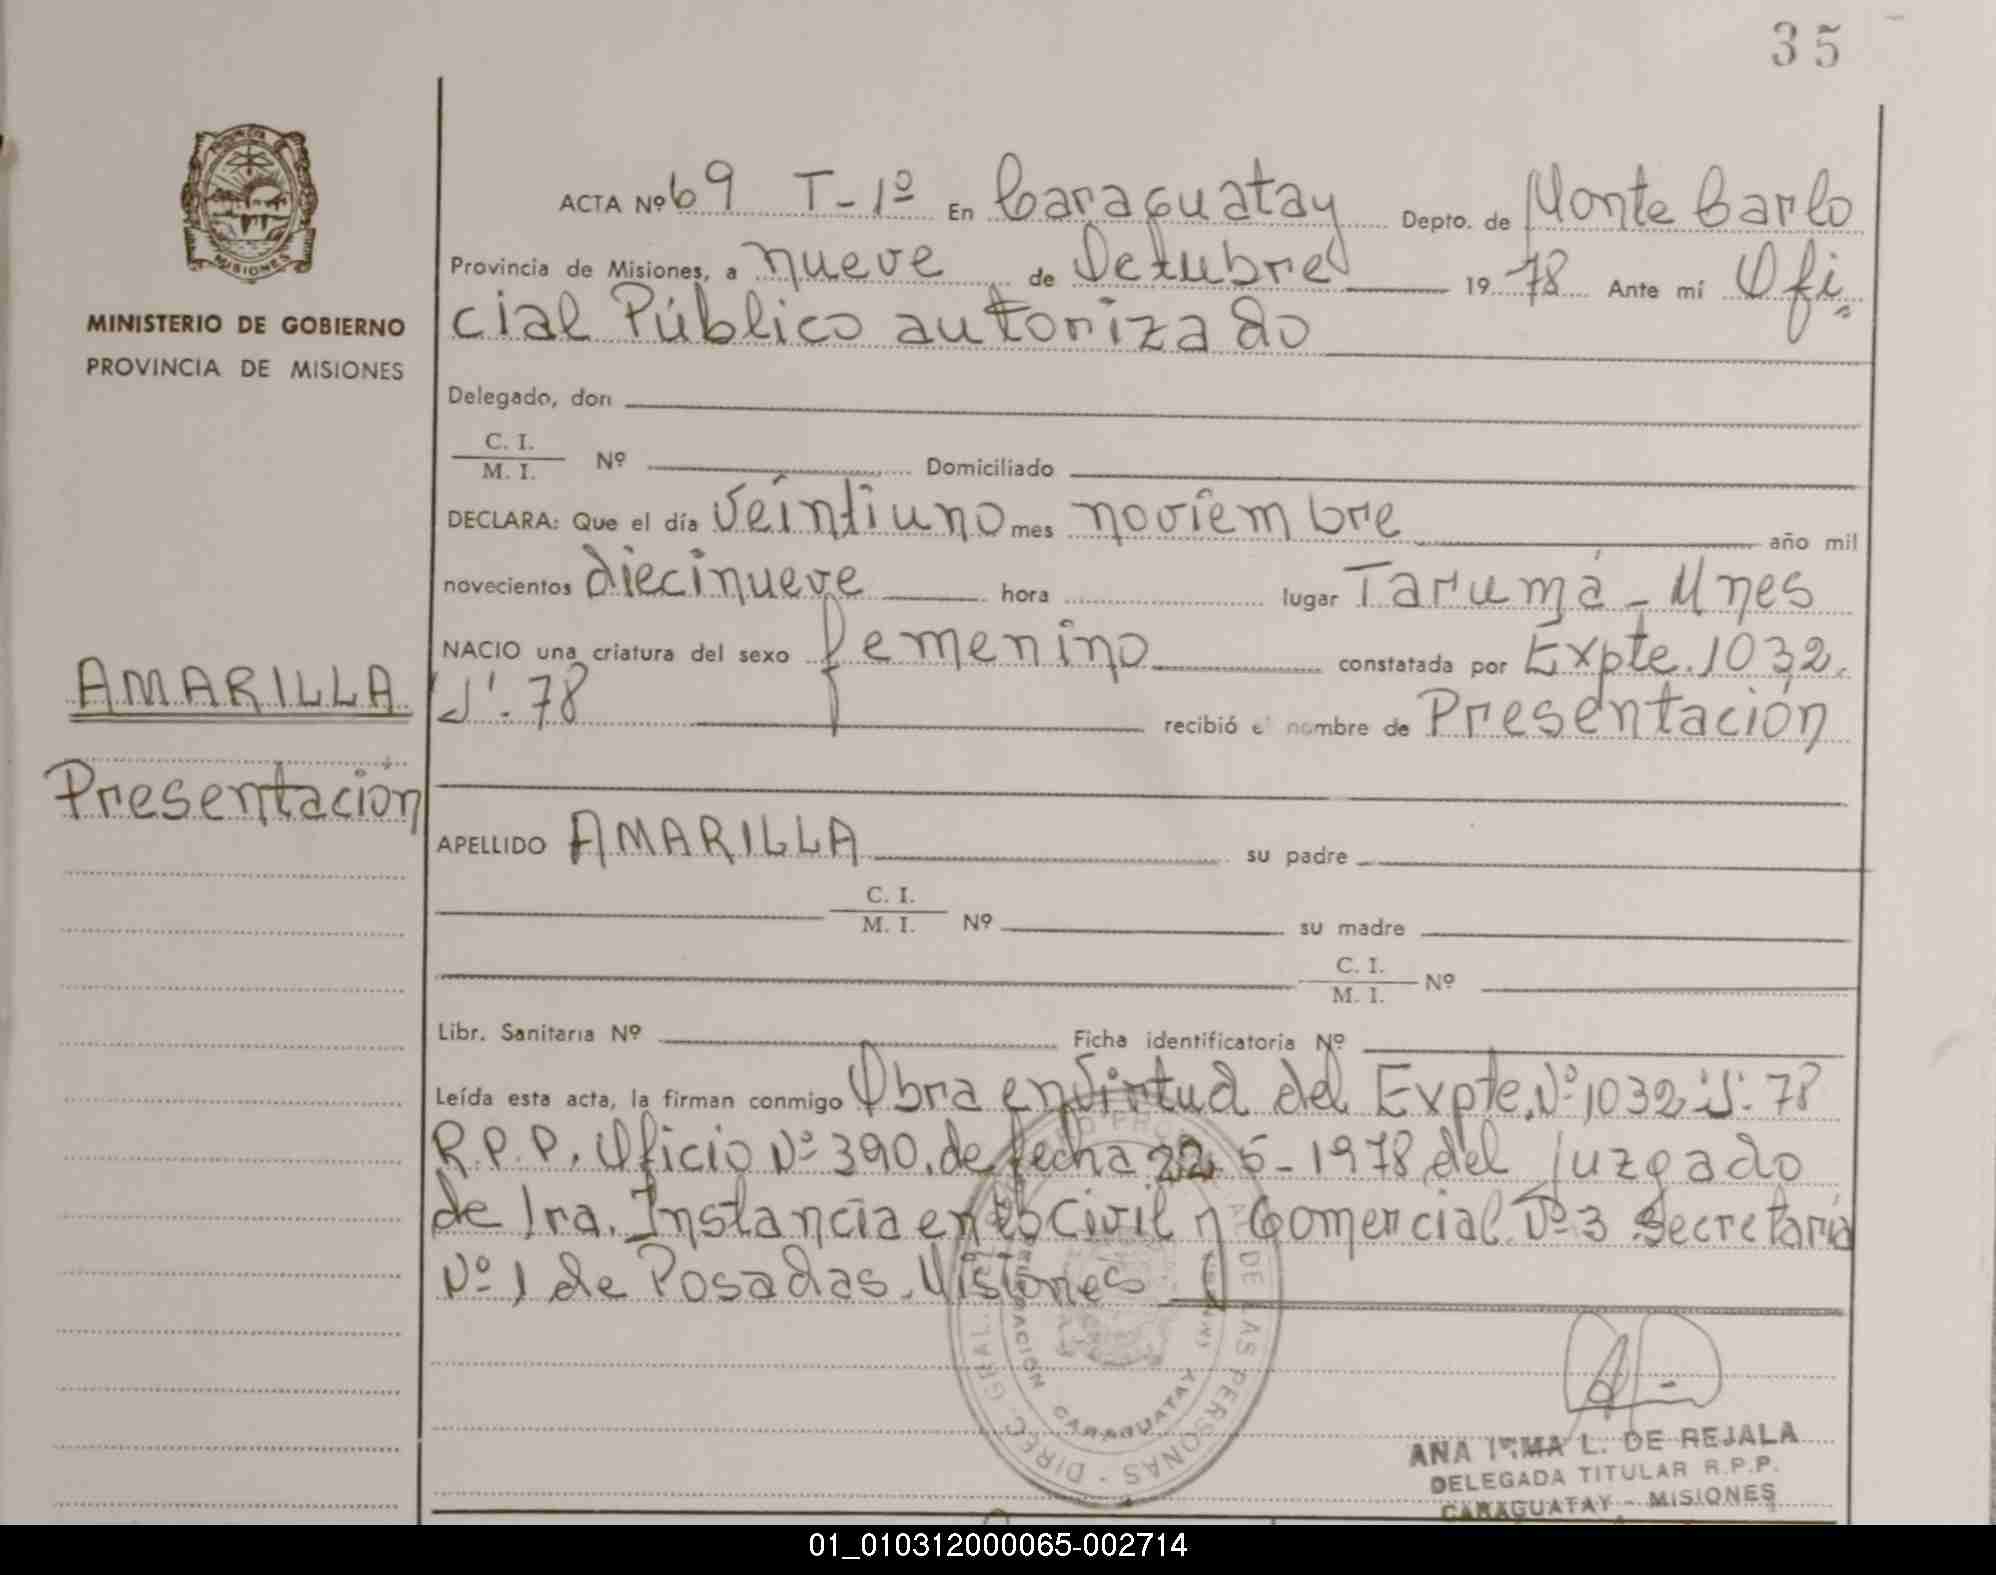 35
PROVINCIA DE
MISIONES
MINISTERIO DE GOBIERNO
PROVINCIA DE MISIONES
AMARILLA
Presentación
ACTA Nº 69 T-1º En Caraguatay Depto. de Monte Carlo
Provincia de Misiones, a nueve de Octubre 19 78 Ante mí Ofi
cial Público autorizado
Delegado, don
C. I.
M. I. Nº Domiciliado
DECLARA: Que el día veintiuno mes noviembre año mil
novecientos diecinueve hora lugar Tarumá - Mnes
NACIO una criatura del sexo femenino constatada por Expte. 1032.
"J". 78 recibió el nombre de Presentación
APELLIDO AMARILLA su padre
C. I.
M. I. Nº su madre
C. I.
M. I. Nº
Libr. Sanitaria Nº Ficha identificatoria Nº
Leída esta acta, la firman conmigo Obra en virtud del Expte. Nº 1032 "J". 78
R.P.P. Oficio Nº 390. de fecha 22-5-1978 del juzgado
de 1ra. Instancia en lo Civil y Comercial Nº 3 Secretaría
Nº 1 de Posadas. Misiones
DIREC. GRAL. DE LAS PERSONAS
CARAGUATAY
ANA IRMA L. DE REJALA
DELEGADA TITULAR R.P.P.
CARAGUATAY - MISIONES
01_010312000065-002714